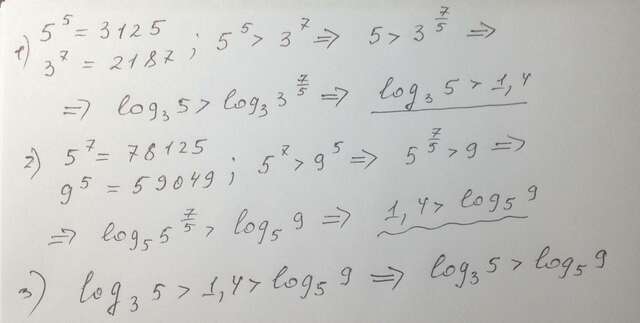 1) 5⁵ = 3125
3⁷ = 2187 ; 5⁵ > 3⁷ ⇒ 5 > 3^(7/5) ⇒
⇒ log₃ 5 > log₃ 3^(7/5) ⇒ log₃ 5 > 1,4
2) 5⁷ = 78125
9⁵ = 59049 ; 5⁷ > 9⁵ ⇒ 5^(7/5) > 9 ⇒
⇒ log₅ 5^(7/5) > log₅ 9 ⇒ 1,4 > log₅ 9
3) log₃ 5 > 1,4 > log₅ 9 ⇒ log₃ 5 > log₅ 9